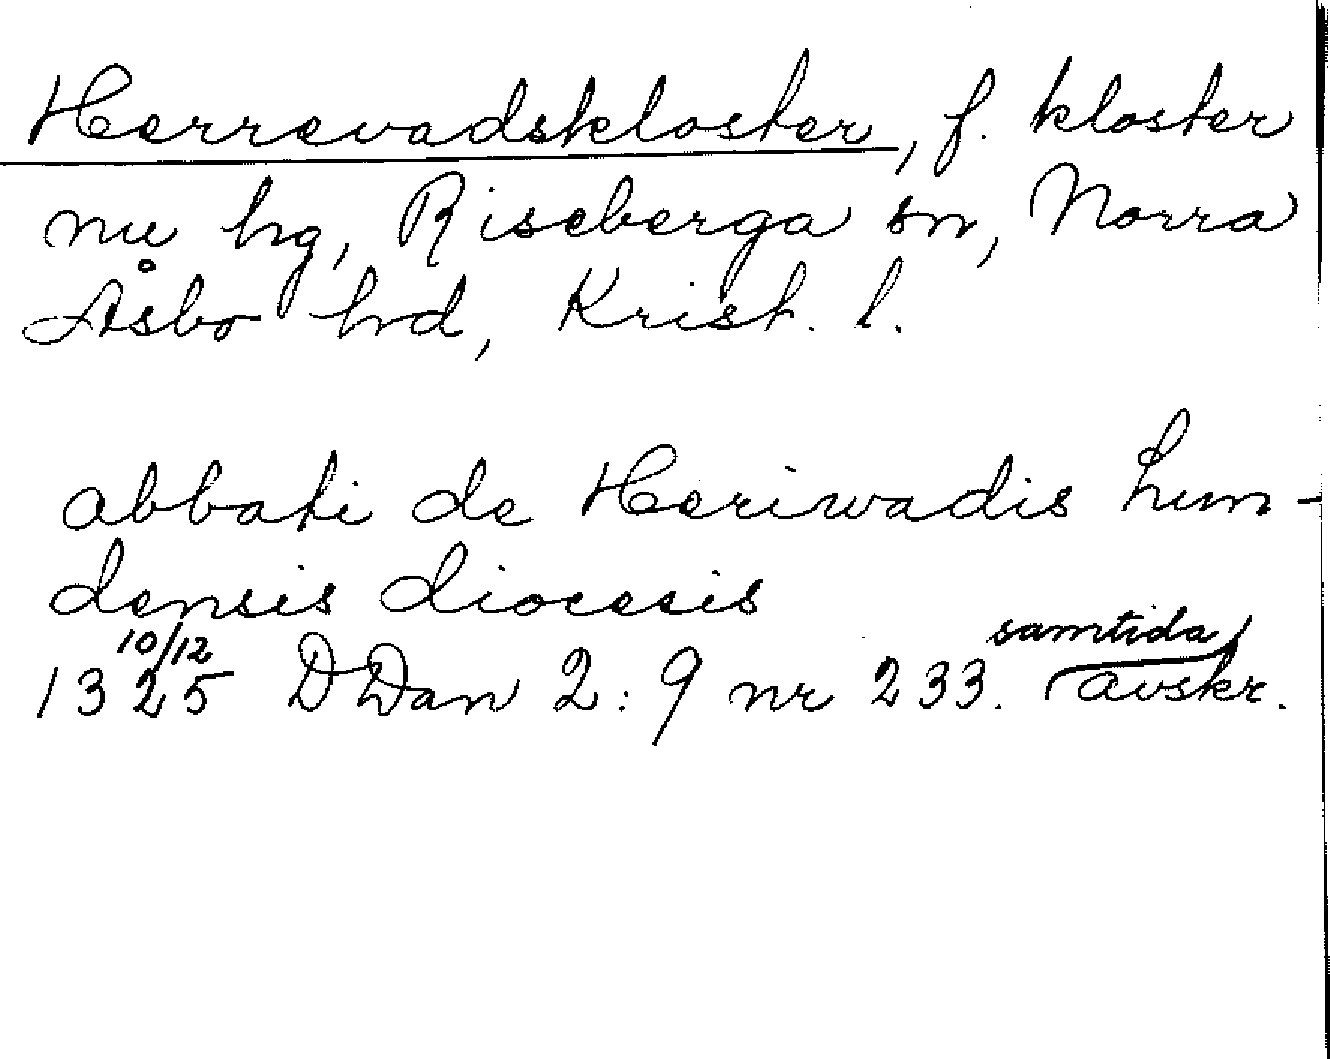 Herrevadskloster, f. kloster
nu hg, Riseberga sn, Norra
Åsbo hrd, Krist. l.
abbati de Heriwadis Lun-
densis diocesis
10/12 samtida
1325 DDan 2:9 nr 233. avskr.